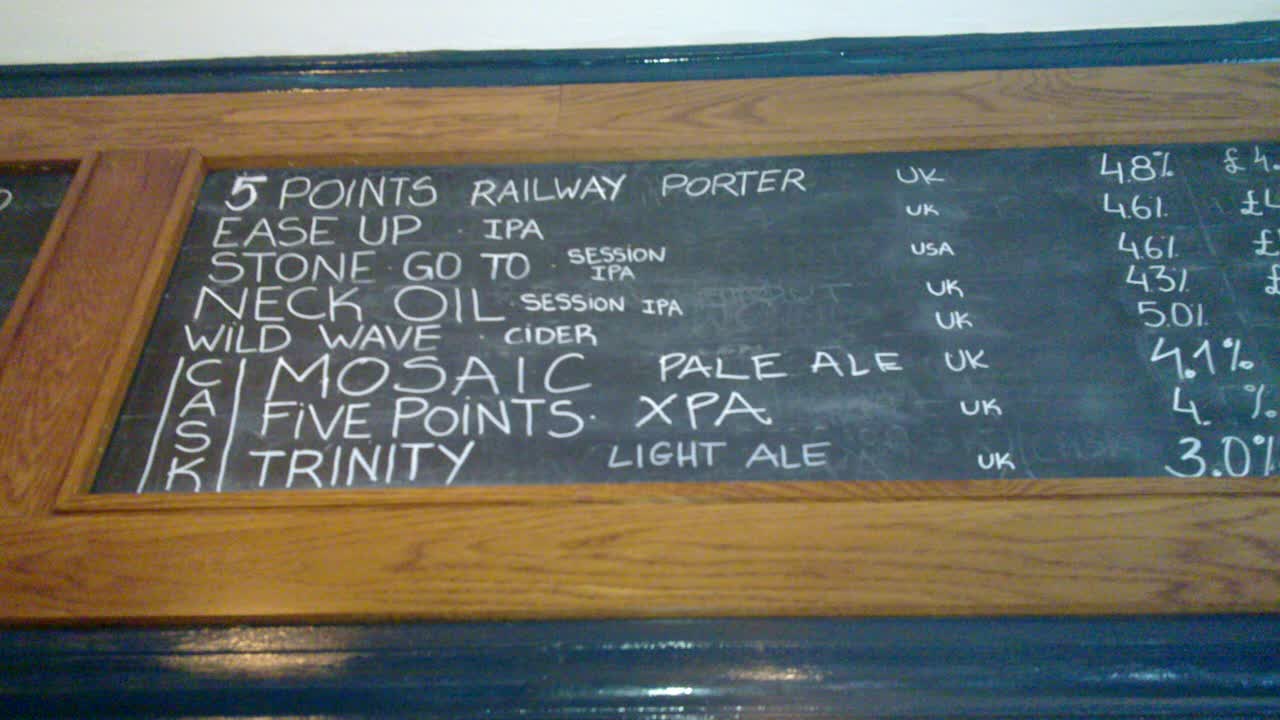 5 POINTS RAILWAY PORTER UK 4.8% £4.
EASE UP · IPA UK 4.6% £4
STONE · GO TO · SESSION IPA USA 4.6% £
NECK OIL · SESSION IPA UK 4.3% £
WILD WAVE · CIDER UK 5.0%
CASK
MOSAIC PALE ALE UK 4.1%
FIVE POINTS · XPA UK 4. %
TRINITY LIGHT ALE UK 3.0%